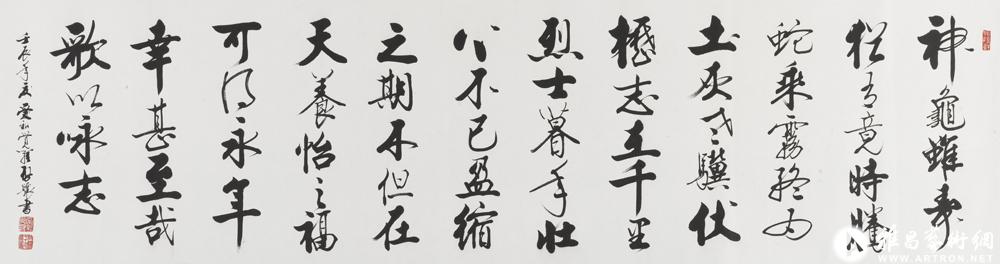 神龜雖壽
猶有竟時騰
蛇乘霧終為
土灰老驥伏
櫪志在千里
烈士暮年壯
心不已盈縮
之期不但在
天養怡之福
可得永年
幸甚至哉
歌以咏志
壬辰年夏愛新覺羅書
雅昌藝術網
WWW.ARTRON.NET